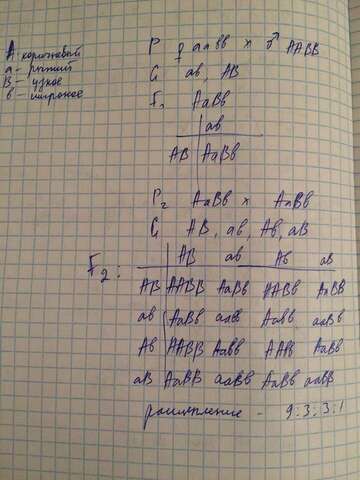 А - коричневый
а - рыжий
В - узкое
в - широкое
P ♀ аавв x ♂ ААВВ
G ав, АВ
F₁ АаВв
ав
АВ АаВв
P₂ АаВв x АаВв
G АВ, ав, Ав, аВ
F₂:
АВ ав Ав аВ
АВ ААВВ АаВв ААВв АаВВ
ав АаВв аавв Аавв ааВв
Ав ААВВ Аавв ААвв АаВв
аВ АаВВ ааВв АаВв ааВВ
расщепление - 9:3:3:1